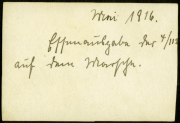 Mai 1916.
Essenausgabe der 4/113
auf dem Marsche.